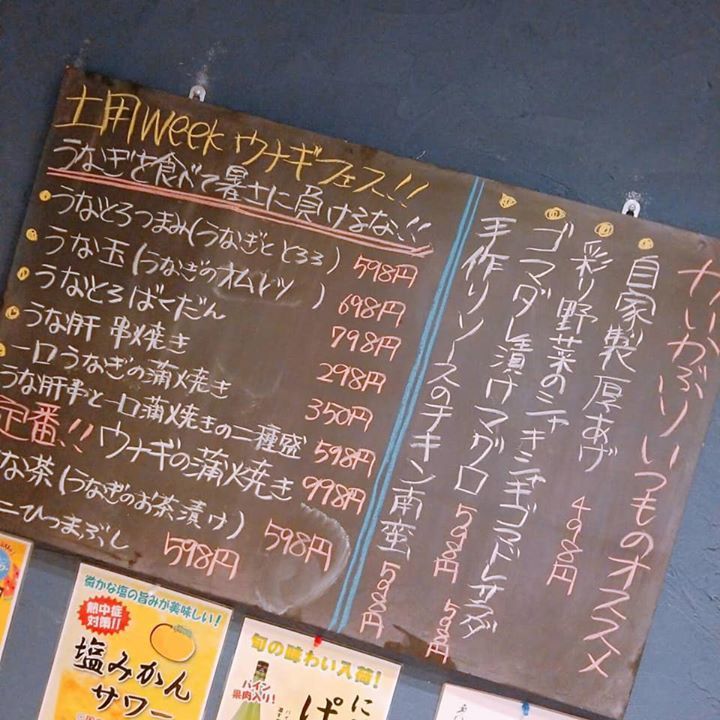 土用weekウナギフェス!!
うなぎを食べて暑さに負けるな!!
うなとろつまみ(うなぎととろろ) 598円
うな玉(うなぎのオムレツ) 698円
うなとろばくだん 798円
うな肝串焼き 298円
一口うなぎの蒲焼き 350円
うな肝串と一口蒲焼きの二種盛 598円
定番!!ウナギの蒲焼き 998円
な茶(うなぎのお茶漬け) 598円
ニひつまぶし 598円
かぶりいつものオススメ
自家製厚あげ 498円
彩り野菜のシャキシャキゴマドレサラダ 598円
ゴマダレ漬けマグロ 598円
手作りソースのチキン南蛮 598円
微かな塩の旨みが美味しい!
熱中症
対策!!
塩みかん
サワー
旬の味わい入荷!
パイン
果肉入り!